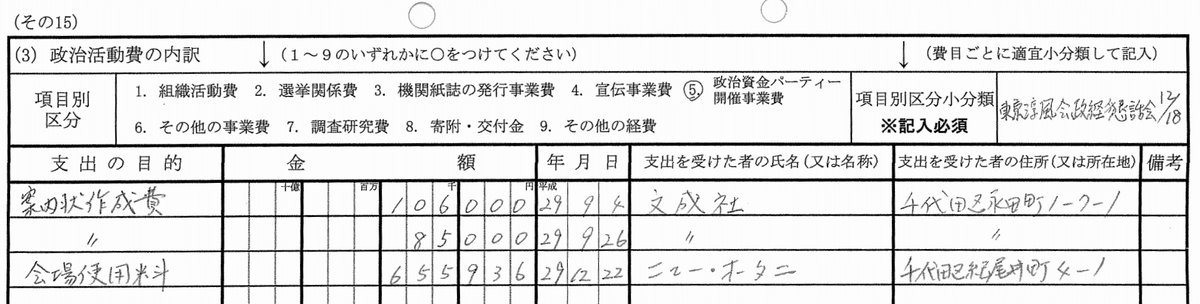 (その15)
(3) 政治活動費の内訳 ↓ (1～9のいずれかに〇をつけてください) ↓ (費目ごとに適宜小分類して記入)
項目別区分 1. 組織活動費 2. 選挙関係費 3. 機関紙誌の発行事業費 4. 宣伝事業費 ⑤. 政治資金パーティー開催事業費 項目別区分小分類 ※記入必須 東京淳風会政経懇話会 12/18
6. その他の事業費 7. 調査研究費 8. 寄附・交付金 9. その他の経費
支出の目的 金額 年月日 支出を受けた者の氏名(又は名称) 支出を受けた者の住所(又は所在地) 備考
十億 百万 千 円 平成
案内状作成費 106000 29 9 4 文成社 千代田区永田町1-7-1
〃 85000 29 9 26 〃 〃
会場使用料 655936 29 12 22 ニュー・オータニ 千代田区紀尾井町4-1